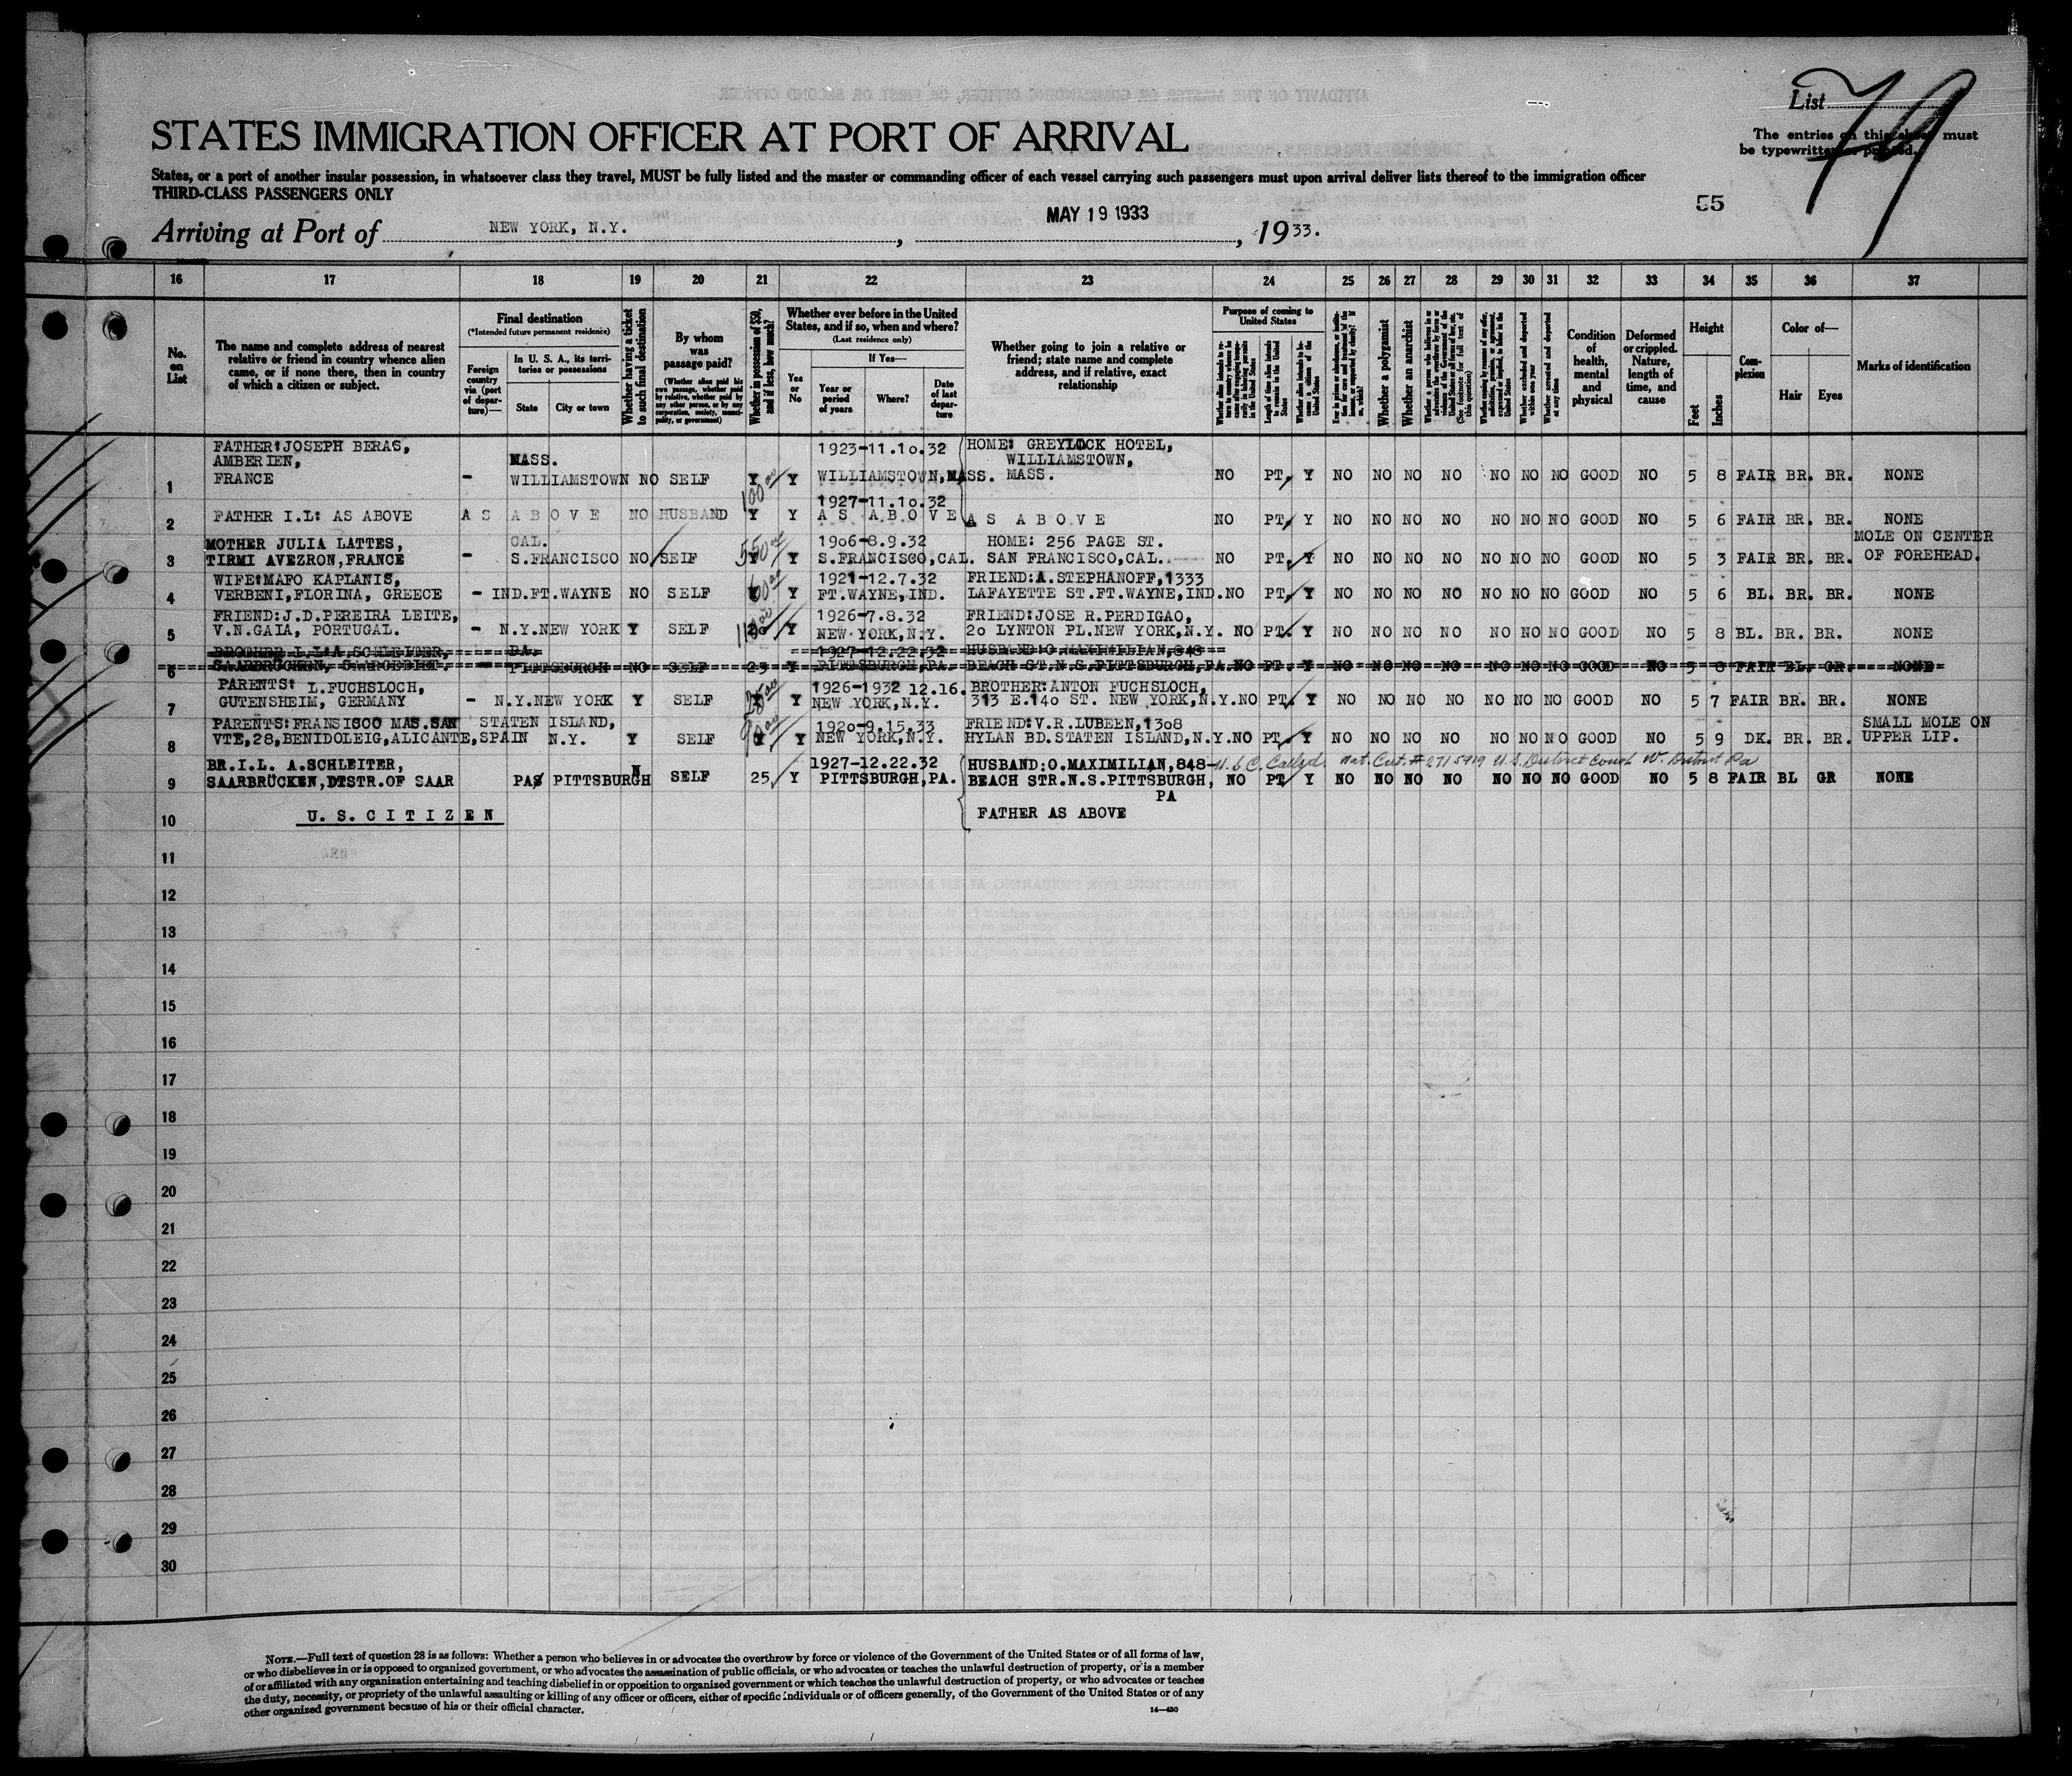 List 79
STATES IMMIGRATION OFFICER AT PORT OF ARRIVAL
The entries on this sheet must
be typewritten or printed.
States, or a port of another insular possession, in whatsoever class they travel, MUST be fully listed and the master or commanding officer of each vessel carrying such passengers must upon arrival deliver lists thereof to the immigration officer
THIRD-CLASS PASSENGERS ONLY
55
Arriving at Port of NEW YORK, N.Y. , MAY 19 1933 , 1933.
16 17 18 19 20 21 22 23 24 25 26 27 28 29 30 31 32 33 34 35 36 37
No. on List
The name and complete address of nearest relative or friend in country whence alien came, or if none there, then in country of which a citizen or subject.
Final destination
(*Intended future permanent residence)
Foreign country via (port of departure)—
In U. S. A., its territories or possessions
State
City or town
Whether having a ticket to such final destination
By whom was passage paid?
(Whether alien paid his own passage, whether paid by relative, whether paid by any other person, or by any corporation, society, municipality, or government)
Whether in possession of $50, and if less, how much?
Whether ever before in the United States, and if so, when and where?
(Last residence only)
Yes or No
If Yes—
Year or period of years
Where?
Date of last departure
Whether going to join a relative or friend; state name and complete address, and if relative, exact relationship
Purpose of coming to United States
Length of time alien intends to remain in the United States
Whether alien intends to become a citizen of the United States
Whether a polygamist
Whether an anarchist
(See footnote for full text of this question)
Whether excluded and deported within one year
Whether arrested and deported at any time
Condition of health, mental and physical
Deformed or crippled. Nature, length of time, and cause
Height
Feet
Inches
Complexion
Color of—
Hair
Eyes
Marks of identification
FATHER:JOSEPH BERAS,
AMBERIEN,
FRANCE
1 - MASS. WILLIAMSTOWN NO SELF Y 100 00 Y 1923-11.10.32 WILLIAMSTOWN,MASS. HOME: GREYLOCK HOTEL, WILLIAMSTOWN, MASS. NO PT Y NO NO NO NO NO NO NO GOOD NO 5 8 FAIR BR. BR. NONE
2 FATHER I.L: AS ABOVE AS ABOVE NO HUSBAND Y Y 1927-11.10.32 AS ABOVE AS ABOVE NO PT Y NO NO NO NO NO NO NO GOOD NO 5 6 FAIR BR. BR. NONE
MOTHER JULIA LATTES,
3 TIRMI AVEZRON,FRANCE - CAL. S.FRANCISCO NO SELF Y Y 1906-8.9.32 S.FRANCISCO,CAL. HOME: 256 PAGE ST. SAN FRANCISCO,CAL. NO PT Y NO NO NO NO NO NO NO GOOD NO 5 3 FAIR BR. BR. MOLE ON CENTER OF FOREHEAD.
WIFE:MAFO KAPLANIS,
4 VERBENI,FLORINA, GREECE - IND.FT.WAYNE NO SELF Y Y 1921-12.7.32 FT.WAYNE,IND. FRIEND:A.STEPHANOFF,1333 LAFAYETTE ST.FT.WAYNE,IND. NO PT Y NO NO NO NO NO NO NO GOOD NO 5 6 BL. BR. BR. NONE
FRIEND:J.D.PEREIRA LEITE,
5 V.N.GAIA, PORTUGAL. - N.Y.NEW YORK Y SELF Y 1926-7.8.32 NEW YORK,N.Y. FRIEND:JOSE R.PERDIGAO, 20 LYNTON PL.NEW YORK,N.Y. NO PT Y NO NO NO NO NO NO NO GOOD NO 5 8 BL. BR. BR. NONE
BROTHER I.L:A SCHLEITER,
6 SAARBRÜCKEN, SAARGEBIET. PA. PITTSBURGH NO SELF 25 Y 1927-12.22.32 PITTSBURGH,PA. HUSBAND:O.MAXIMILIAN,848 BEACH ST.N.S.PITTSBURGH,PA. NO PT. Y NO NO NO NO NO NO NO GOOD NO 5 8 FAIR BL. GR. NONE
PARENTS: L.FUCHSLOCH,
7 GUTENSHEIM, GERMANY - N.Y.NEW YORK Y SELF Y Y 1926-1932 12.16. NEW YORK,N.Y. BROTHER:ANTON FUCHSLOCH, 313 E.140 ST. NEW YORK,N.Y. NO PT Y NO NO NO NO NO NO NO GOOD NO 5 7 FAIR BR. BR. NONE
PARENTS:FRANSISCO MAS.SAN
8 VTE,28,BENIDOLEIG,ALICANTE,SPAIN STATEN ISLAND, N.Y. Y SELF Y Y 1920-9.15.33 NEW YORK,N.Y. FRIEND:V.R.LUBEEN,1308 HYLAN BD.STATEN ISLAND,N.Y. NO PT Y NO NO NO NO NO NO NO GOOD NO 5 9 DK. BR. BR. SMALL MOLE ON UPPER LIP.
U.S.C. Nat. Cert. # 2715919 U.S. District Court W. District Pa
BR.I.L. A.SCHLEITER,
9 SAARBRÜCKEN,DISTR.OF SAAR PA PITTSBURGH N SELF 25, Y 1927-12.22.32 PITTSBURGH,PA. HUSBAND:O.MAXIMILIAN,848- BEACH STR.N.S.PITTSBURGH, PA NO PT Y NO NO NO NO NO NO NO GOOD NO 5 8 FAIR BL GR NONE
10 U. S. CITIZEN FATHER AS ABOVE
11
12
13
14
15
16
17
18
19
20
21
22
23
24
25
26
27
28
29
30
NOTE.—Full text of question 28 is as follows: Whether a person who believes in or advocates the overthrow by force or violence of the Government of the United States or of all forms of law,
or who disbelieves in or is opposed to organized government, or who advocates the assassination of public officials, or who advocates or teaches the unlawful destruction of property, or is a member
of or affiliated with any organization entertaining and teaching disbelief in or opposition to organized government or which teaches the unlawful destruction of property, or who advocates or teaches
the duty, necessity, or propriety of the unlawful assaulting or killing of any officer or officers, either of specific individuals or of officers generally, of the Government of the United States or of any
other organized government because of his or their official character.
14—430